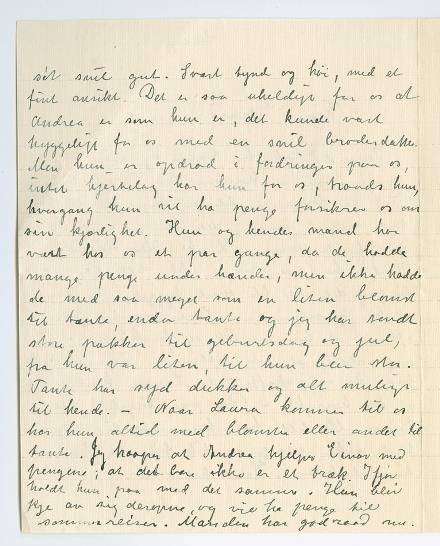 sét snil gut. Svært tynd og høi, med et
fint ansikt. Det er saa uheldigt for os at
Andrea er som hun er, det kunde vært
hyggeligt for os med en snil broderdatter.
Men hun er opdrad i fordringer paa os,
intet hjertelag har hun for os, traads hun
hvergang hun vil ha penge forsikrer os om
sin kjærlighet. Hun og hendes mand har
vært hos os et par gange, da de hadde
mange penge under hænder, men ikke hadde
de med saa meget som en liten blomst
til tante, enda tante og jeg har sendt
store pakker til geburtsdag og jul,
fra hun var liten, til hun blev stor.
Tante har syd dukker og alt muligt
til hende. – Naar Laura kommer til os
har hun altid med blomster eller andet til
tante. Jeg haaper at Andrea hjelper Einar med
pengene, at det bare ikke er et bræk. Ifjor
holdt hun paa med det samme. Hun blev
kje av sig deroppe, og vil ha penge til
sommerreiser. Manden har god raad nu.